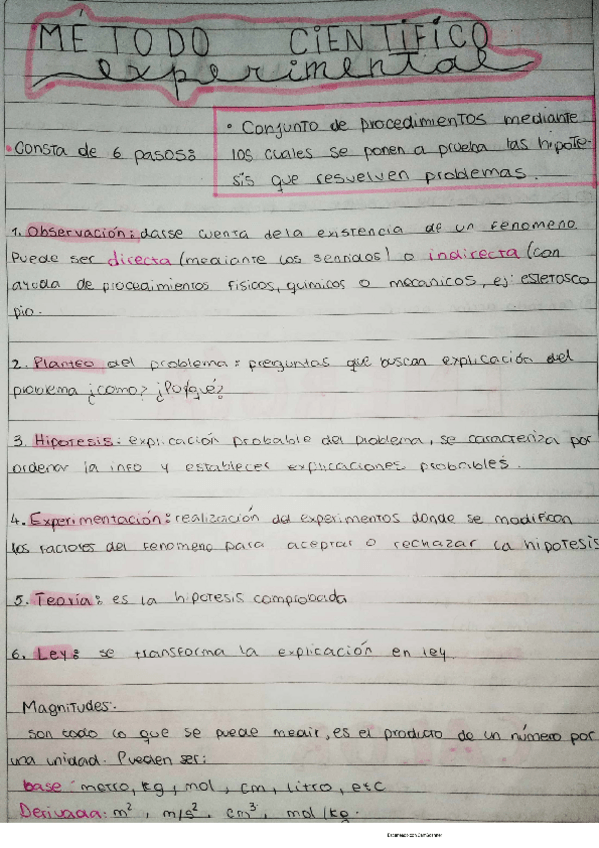 MÉTODO CIENTIFÍCO
experimental
• Conjunto de procedimientos mediante
• Consta de 6 pasos:
los cuales se ponen a prueba las hipote-
sis que resuelven problemas.
1. Observación: darse cuenta dela existencia de un fenomeno.
Puede ser directa (mediante los sentidos) o indirecta (con
ayuda de procedimientos físicos, químicos o mecanicos, ej: estetosco
pio.
2. Planteo del problema: preguntas que buscan explicación del
problema ¿como? ¿Porqué?
3. Hipotesis: explicación probable del problema, se caracteriza por
ordenar la info y establecer explicaciones probables.
4. Experimentación: realización del experimentos donde se modifican
los factores del fenomeno para aceptar o rechazar la hipotesis
5. Teoría: es la hipotesis comprobada
6. Ley: se transforma la explicación en ley
Magnitudes.
son todo lo que se puede medir, es el producto de un número por
una unidad. Pueden ser:
base: metro, kg, mol, cm, litro, etc
Derivada: m², m/s², cm³, mol/kg.
Escaneado con CamScanner